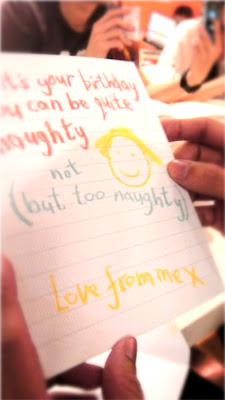 it's your birthday
you can be quite
naughty
not
(but too naughty)
Love from me x